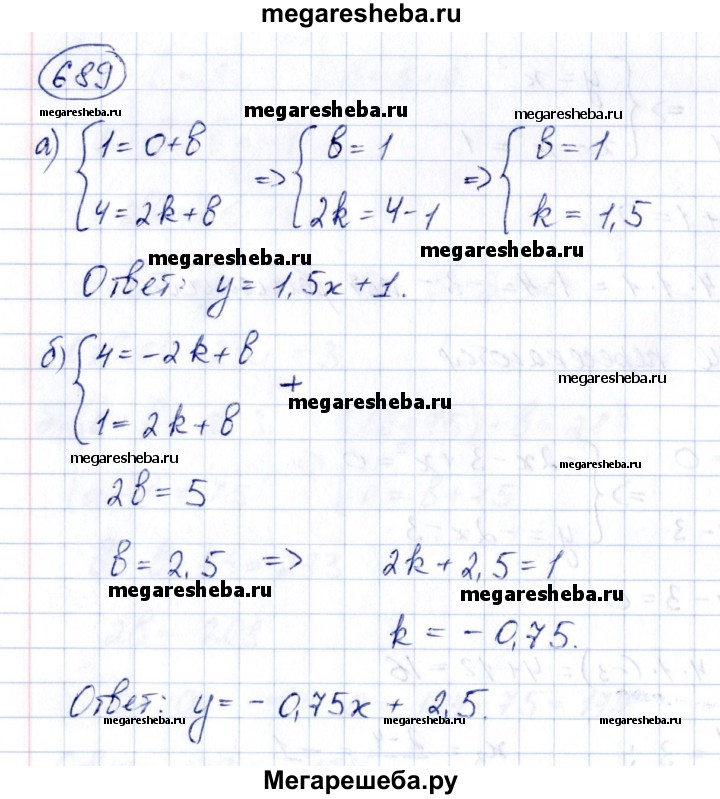 megaresheba.ru
689
megaresheba.ru megaresheba.ru megaresheba.ru
а) { 1 = 0 + в => { в = 1 => { в = 1
4 = 2k + в 2k = 4 - 1 k = 1,5
megaresheba.ru megaresheba.ru
Ответ: y = 1,5x + 1.
б) { 4 = -2k + в
+
megaresheba.ru
megaresheba.ru
1 = 2k + в
megaresheba.ru megaresheba.ru
2в = 5
в = 2,5 => 2k + 2,5 = 1
megaresheba.ru megaresheba.ru
k = -0,75.
Ответ: y = -0,75x + 2,5.
megaresheba.ru megaresheba.ru megaresheba.ru megaresheba.ru
Мегарешеба.ру